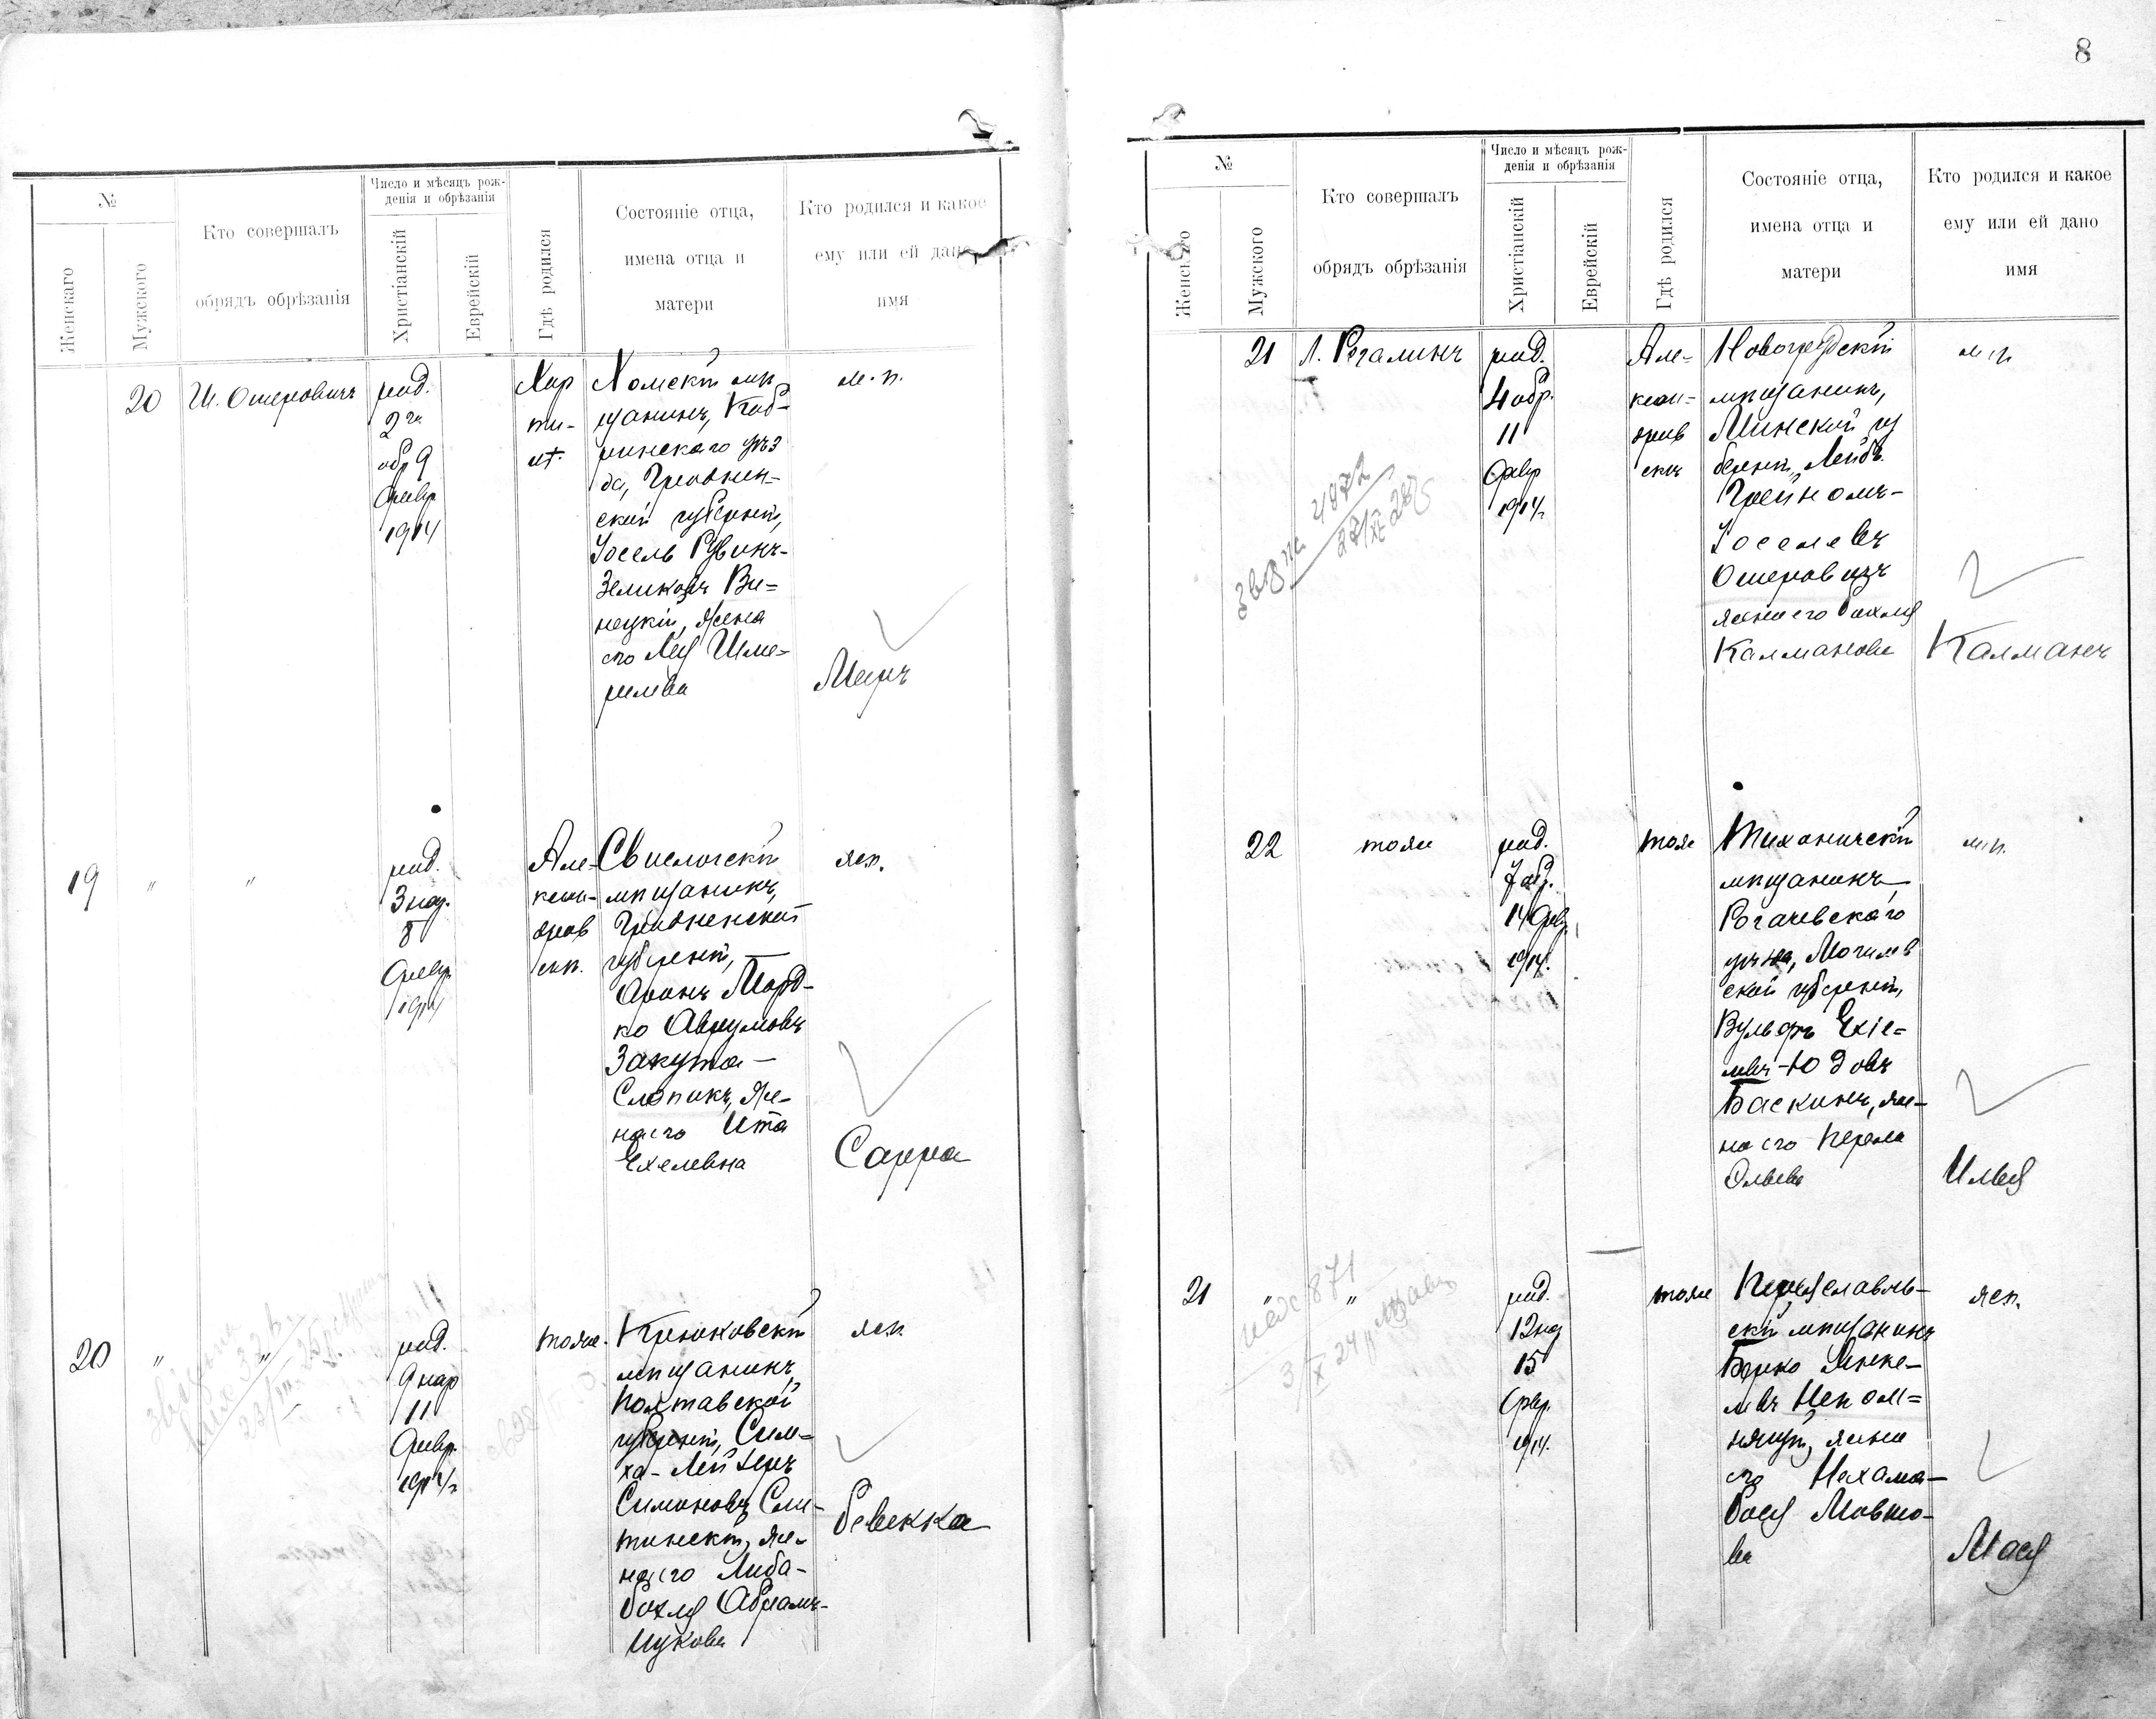 8
№
Женскаго
Мужского
Кто совершалъ
обрядъ обрѣзанія
Число и мѣсяцъ рож-
денія и обрѣзанія
Христіанскій
Еврейскій
Гдѣ родился
Состояніе отца,
имена отца и
матери
Кто родился и какое
ему или ей дано
имя
20
И. Ошеровичъ
род.
2го
обр 9
Февр
1914
Хомскій мѣ
щанинъ, Коб-
ринскаго уѣз
да, Гроднен-
ской губерніи,
Іосель Рувинъ-
Зеликовъ Ви-
нецкій, жена
его Лея Шме-
рилева
м.п.
Меиръ
19
"
"
род.
3 нар.
8
Февр
1914
Але-
ксан-
дров
скъ.
Свислочскій
мѣщанинъ,
Гродненской
губерніи,
Аронъ Морд-
ко Аврумовъ
Закута-
Слопикъ, же-
на его Ита
Ехелевна
жп.
Сарра
20
"
"
род.
9 нар
11
Февр.
1914г
тоже.
Крюковскій
мѣщанинъ,
Полтавской
губерніи, Сим-
ха-Лейзеръ
Симоновъ
жп.
на его Либа-
Бохля Абрамъ-
Ицкова
Ревекка
№
Женскаго
Мужского
Кто совершалъ
обрядъ обрѣзанія
Число и мѣсяцъ рож-
денія и обрѣзанія
Христіанскій
Еврейскій
Гдѣ родился
Состояніе отца,
имена отца и
матери
Кто родился и какое
ему или ей дано
имя
21
Л. Рогалинъ
род.
4 обр.
11
Февр
1914г
Але-
ксан-
дров
скъ
Новогрудскій
мѣщанинъ,
Минской гу
берніи, Лейбъ
Гройномъ-
Іоселевъ
Ошеровичъ
жена его Рахля
Калманова
мп
Калманъ
4872
27/XI 28
22
тоже
род.
7 обр.
14 Февр.
1914.
тоже
Тихоничскій
мѣщанинъ
Рогачевскаго
уѣзда, Могилев
ской губерніи,
Вульфъ Ехіе-
левъ-Юдовъ
Баскинъ, же-
на его Перла
м.п.
Илья
21
"
"
род.
12 нар
15
Февр.
1914.
тоже
Переяславль-
скій мѣщанинъ
Берко Янке-
левъ Непом-
нящій, жена
его Нехама-
Бася Мовшо-
ва
жп.
Мася
871
3/X 24